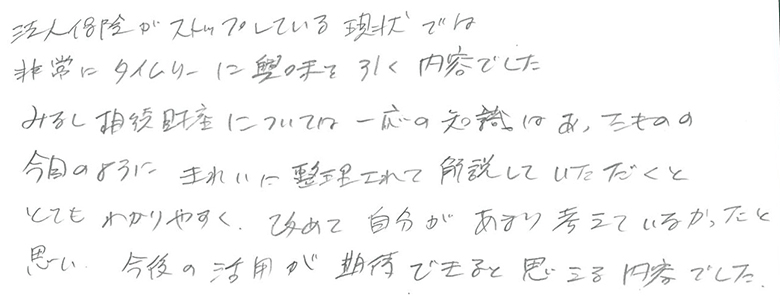 法人保険がストップしている現状では
非常にタイムリーに興味を引く内容でした
みなし相続財産については一応の知識はあったものの
今回のように きれいに整理されて解説していただくと
とてもわかりやすく、改めて自分があまり考えていなかったと
思い、今後の活用が期待できると思える内容でした。